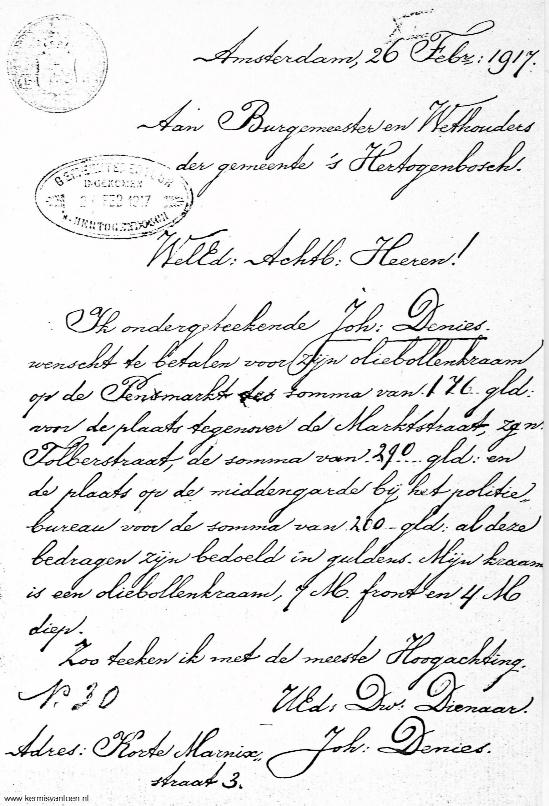 Amsterdam, 26 Febr: 1917.
Aan Burgemeester en Wethouders
der gemeente 's Hertogenbosch.
INGEKOMEN
FEB 1917
HERTOGENBOSCH
WelEd: Achtb: Heeren!
Ik ondergeteekende Joh: Denies.
wenscht te betalen voor zijn oliebollenkraam
op de Pensmarkt des somma van 176 gld:
voor de plaats tegenover de Marktstraat, zgn.
Tolberstraat, de somma van 290 gld: en
de plaats op de middengarde bij het politie-
bureau voor de somma van 200 gld: al deze
bedragen zijn bedoeld in guldens. Mijn kraam
is een oliebollenkraam, 7 M. front en 4 M
diep.
Zoo teeken ik met de meeste Hoogachting.
N. 30
UEd: Dw. Dienaar.
Adres: Korte Marnix-
Joh: Denies.
straat 3.
www.kermisvantoen.nl